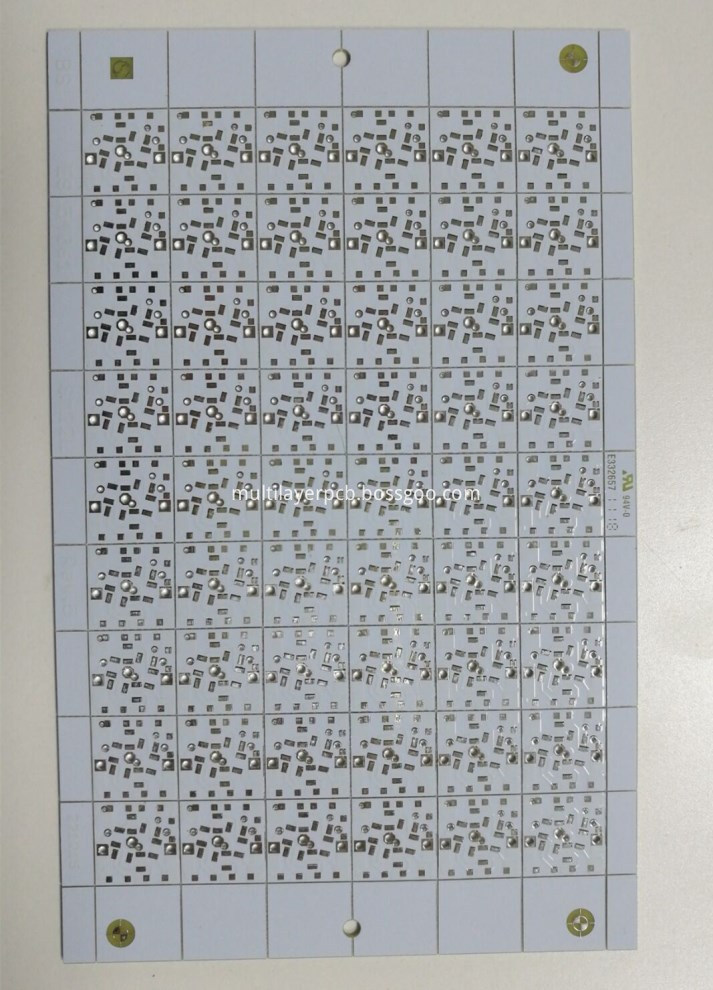 multilayerpcb.bossgoo.com
E332657
94V-0